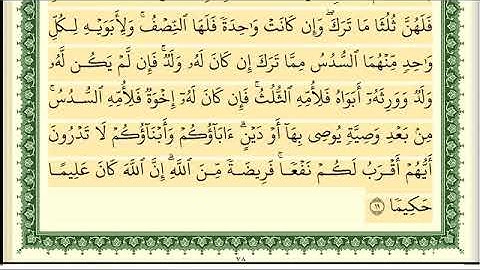 فَلَهُنَّ ثُلُثَا مَا تَرَكَ ۖ وَإِن كَانَتْ وَٰحِدَةً فَلَهَا ٱلنِّصْفُ ۚ وَلِأَبَوَيْهِ لِكُلِّ
وَٰحِدٍ مِّنْهُمَا ٱلسُّدُسُ مِمَّا تَرَكَ إِن كَانَ لَهُۥ وَلَدٌ ۚ فَإِن لَّمْ يَكُن لَّهُۥ
وَلَدٌ وَوَرِثَهُۥٓ أَبَوَاهُ فَلِأُمِّهِ ٱلثُّلُثُ ۚ فَإِن كَانَ لَهُۥٓ إِخْوَةٌ فَلِأُمِّهِ ٱلسُّدُسُ ۚ
مِنۢ بَعْدِ وَصِيَّةٍ يُوصِى بِهَآ أَوْ دَيْنٍ ۗ ءَابَآؤُكُمْ وَأَبْنَآؤُكُمْ لَا تَدْرُونَ
أَيُّهُمْ أَقْرَبُ لَكُمْ نَفْعًا ۚ فَرِيضَةً مِّنَ ٱللَّهِ ۗ إِنَّ ٱللَّهَ كَانَ عَلِيمًا
حَكِيمًا ١١
٧٨